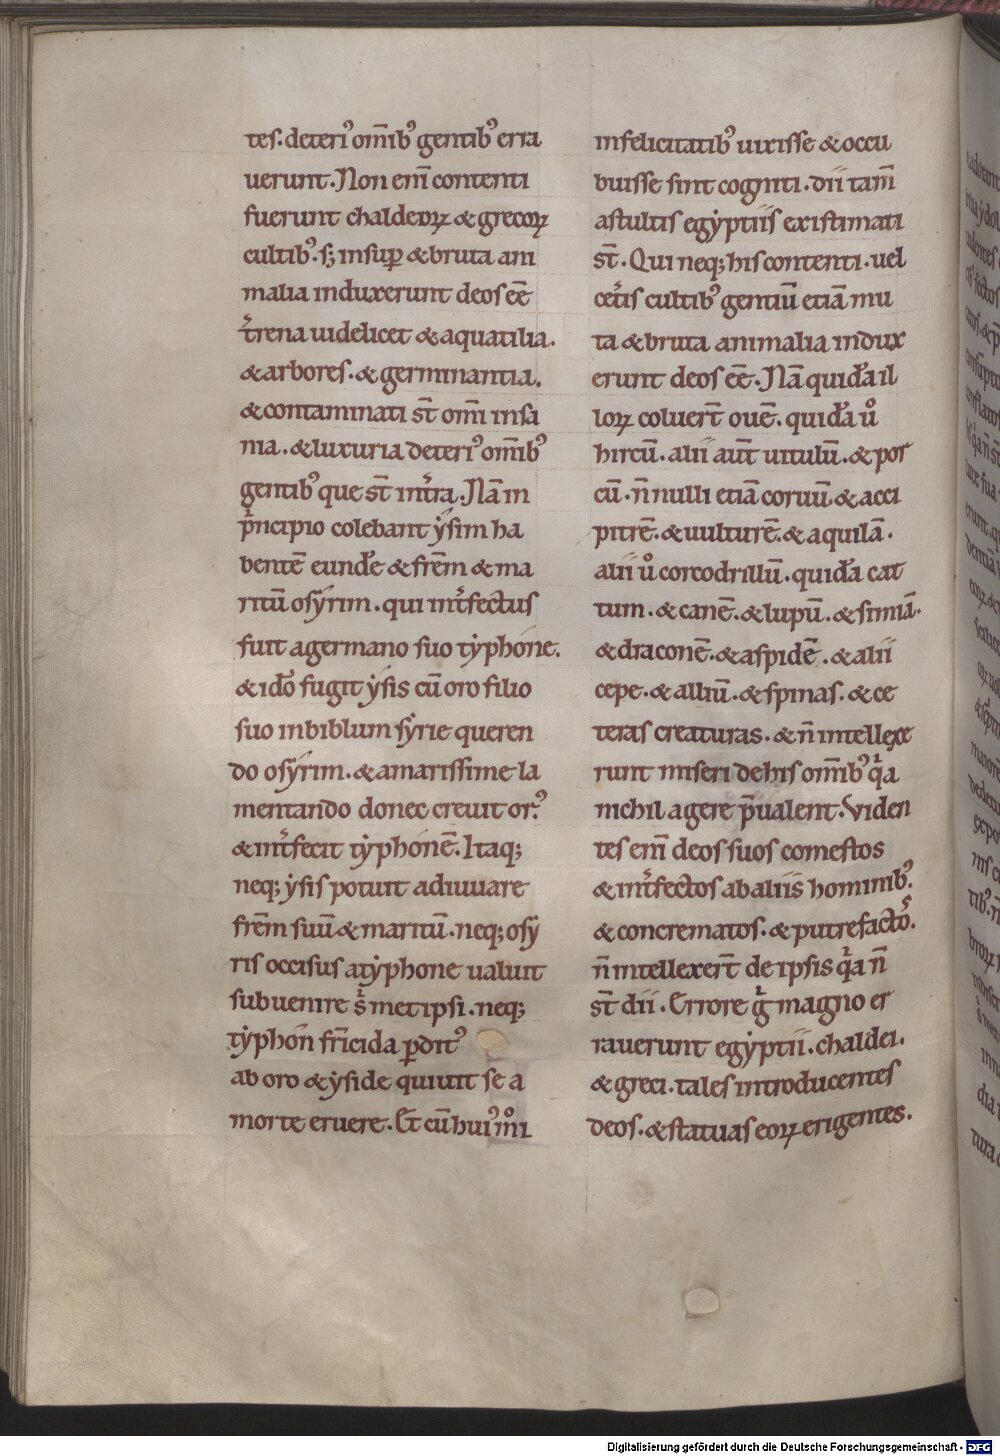 tes. deteri᾽ om̅ib᾽ gentib᾽ erra
uerunt. Non eni̅ contenti
fuerunt chaldeoꝝ & grecoꝝ
cultib᾽. sꝫ insuꝑ & bruta ani
malia induxerunt deos ee̅
t͛rena uidelicet & aquatilia.
& arbores. & germinantia.
& contaminati st̅ omi̅ insa
nia. & luxuria deteri᾽ om̅ib᾽
gentib᾽ que st̅ int͛ra. Na̅ in
pͥncipio colebant ẏsim ha
bente̅ eunde̅ & fre̅m & ma
ritu̅ osẏrim. qui int͛fectus
fuit a germano suo tẏphone.
& idͦo fugit ẏsis cu̅ oro filio
suo in biblum sẏrie queren
do osẏrim. & amarissime la
mentando donec creuit or᾽.
& int͛fecit tẏphone̅. Itaqꝫ
neqꝫ ẏsis potuit adiuuare
fre̅m suu̅ & maritu̅. neqꝫ osẏ
ris occisus a tẏphone ualuit
subuenire sͥ met ipsi. neqꝫ
tẏphon fri̅cida ꝑdit᾽
ab oro & ẏside quiuit se a
morte eruere. Et cu̅ hui᾽ mͦi
infelicitatib᾽ uixisse & occu
buisse sint cogniti. dii tam̅
a stultis egẏptiis existimati
st̅. Qui neqꝫ his contenti. uel
cet͛is cultib᾽ gentiu̅ etia̅ mu
ta & bruta animalia indux
erunt deos ee̅. Na̅ quida̅ il
loꝝ coluert̅ oue̅. quida̅ uͦ
hircu̅. alii aut̅ uitulu̅. & por
cu̅. n̅nulli etia̅ coruu̅ & acci
pitre̅. & uulture̅. & aquila̅.
alii uͦ corcodrillu̅. quida̅ cat
tum. & cane̅. & lupu̅. & simia̅.
& dracone̅. & aspide̅. & alii
cepe. & alliu̅. & spinas. & ce
teras creaturas. & n̅ intellexe
runt miseri de his om̅ib᾽ qͥa
nichil agere p̅ualent. Viden
tes eni̅ deos suos comestos
& int͛fectos ab aliis hominib᾽.
& concrematos. & putrefactoˢ.
n̅ intellexert̅ de ipsis qͥa n̅
st̅ dii. Errore gͥ magno er
rauerunt egẏptii. chaldei.
& greci. tales introducentes
deos. & statuas eoꝝ erigentes.
Digitalisierung gefördert durch die Deutsche Forschungsgemeinschaft - DFG